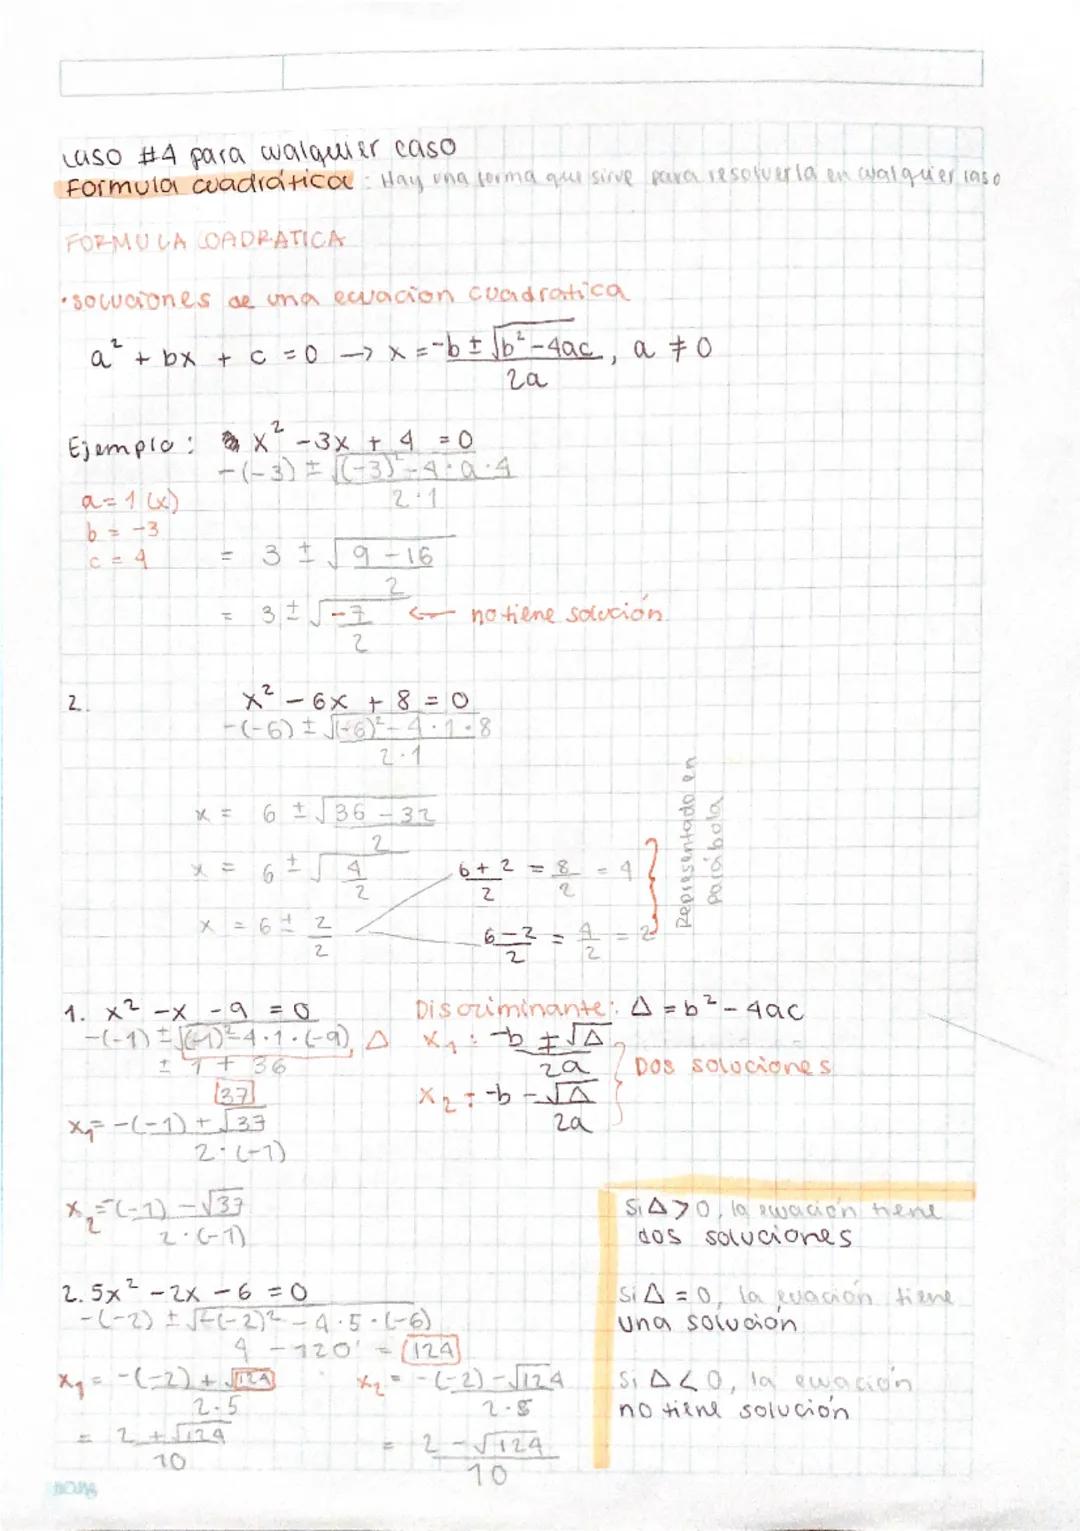 caso #4 para cualquier caso
Formula cuadrática : Hay una forma que sirve para resolverla en cualquier caso
FORMULA COADRATICA
•soluciones de una ecuacion cuadratica
a² + bx + c = 0 → x = -b ± √b² - 4ac , a ≠ 0
2a
Ejemplo : x² - 3x + 4 = 0
-(-3) ± √(-3)² - 4 · a · 4
2 · 1
a = 1 (x)
b = -3
c = 4
= 3 ± √9 - 16
2
= 3 ± √-7 ← no tiene solución
2
2. x² - 6x + 8 = 0
-(-6) ± √(-6)² - 4 · 1 · 8
2 · 1
x = 6 ± √36 - 32
2
x = 6 ± √4
2
x = 6 ± 2
2
6 + 2 = 8 = 4
2 2
6 - 2 = 4 = 2
2 2
Representado en
parábola
1. x² - x - 9 = 0
-(-1) ± √(-1)² - 4 · 1 · (-9) Δ
± 1 + 36
37
x₁ = -(-1) + √37
2 · (-1)
x₂ = -(-1) - √37
2 · (-1)
Discriminante : Δ = b² - 4ac
x₁ : -b ± √Δ
2a
x₂ = -b - √Δ
2a
Dos soluciones
2. 5x² - 2x - 6 = 0
-(-2) ± √(-2)² - 4 · 5 · (-6)
4 - 120 = 124
x₁ = -(-2) + √124
2 · 5
= 2 + √124
10
x₂ = -(-2) - √124
2 · 5
= 2 - √124
10
Si Δ > 0, la ecuación tiene
dos soluciones
Si Δ = 0, la ecuación tiene
una solución
Si Δ < 0, la ecuación
no tiene solución